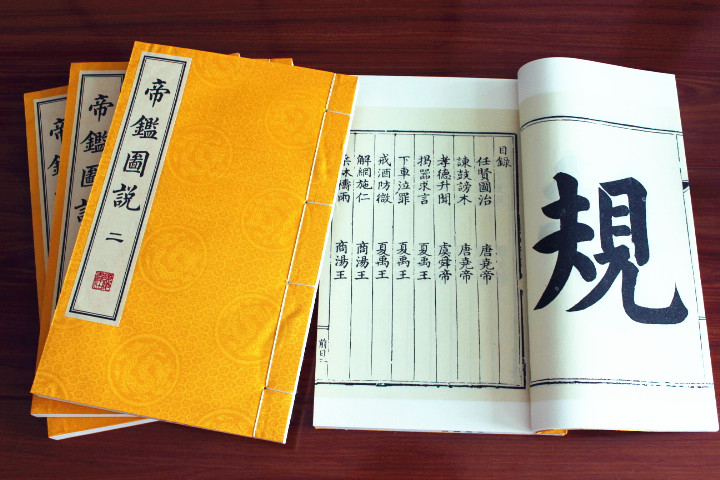 帝鑑圖説 二
帝鑑圖説
帝鑑
規
目录
任賢圖治 唐堯帝
諫鼓謗木 唐堯帝
孝德升聞 虞舜帝
揭器求言 夏禹王
下車泣罪 夏禹王
戒酒防微 夏禹王
解網施仁 商湯王
桑林禱雨 商湯王
前目